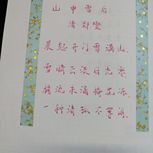 山中雪后
清郑燮
晨起开门雪满山，
雪晴云淡日光寒。
檐流未滴梅花冻，
一种清孤不等闲。